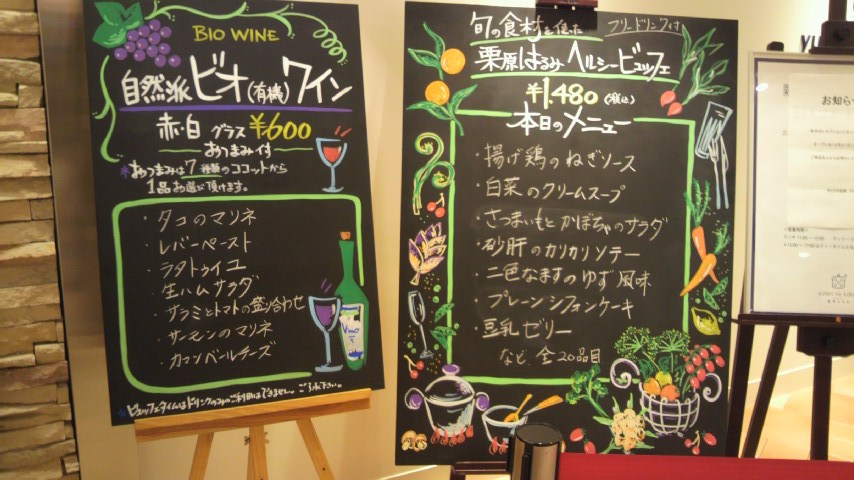 BIO WINE
自然派 ビオ(有機)ワイン
赤・白 グラス ¥600
おつまみ付
*おつまみは7種類のココットから
1品お選び頂けます。
・タコのマリネ
・レバーペースト
・ラタトゥイユ
・生ハムサラダ
・サラミとトマトの盛り合わせ
・サーモンのマリネ
・カマンベールチーズ
Vino
*ビュッフェタイムはドリンクのみのご利用はできません。ご了承下さい。
旬の食材を使った フリードリンク付
栗原はるみ ヘルシービュッフェ
¥1,480(税込)
本日のメニュー
・揚げ鶏のねぎソース
・白菜のクリームスープ
・さつまいもとかぼちゃのサラダ
・砂肝のカリカリソテー
・二色なますのゆず風味
・プレーンシフォンケーキ
・豆乳ゼリー
など、全20品目
お知らせ